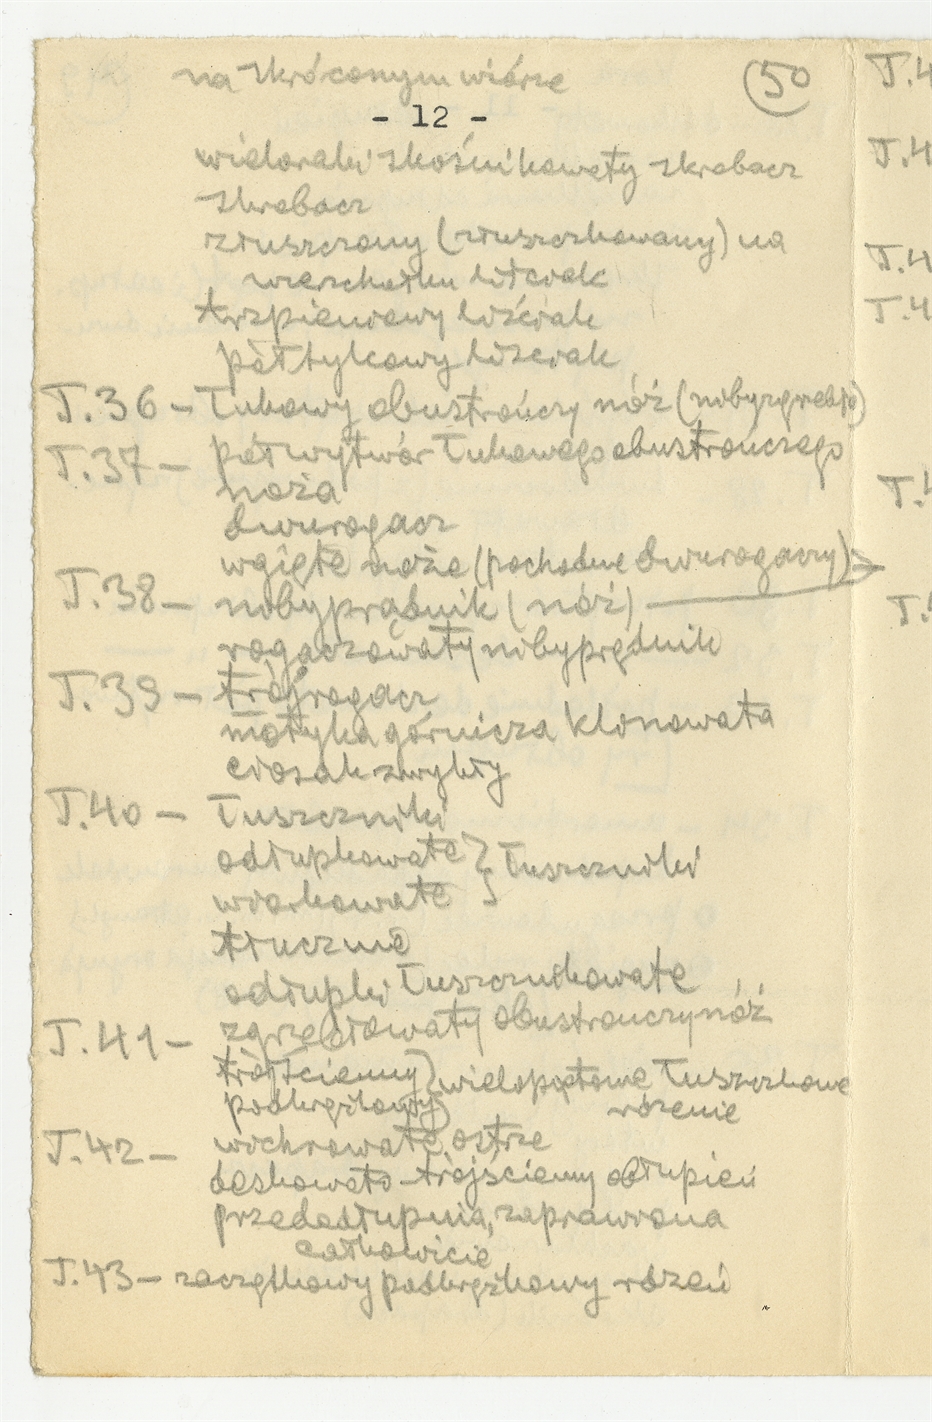 na skróconym wiórze
50
- 12 -
wieloraki skośnikowaty skrobacz
skrobacz
złuszczony (złuszczkowany) na
wierzchołku liściak
trzpieniowy liściak
półtylcowy liściak
T.36 - Łukowy obustrończy nóż (niby
T.37 - półwytwór Łukowego obustrończego
noża
dwurogacz
wgięte noże (pochodne dwurogaczy)
T.38 - nibyprądnik (nóż)
rogaczowaty nibyprądnik
T.39 - trójrogacz
motyka górnicza klonowata
ciosak zwykły
T.40 - Łuszczniki
odłupkowate } Łuszczniki
wiórkowate
tłucznie
odłupki Łuszcznikowate
T.41 - zgrzebłowaty obustrończy nóż
trójścienny } wielopiętowe Łuszczkowe
podkrążkowy rdzenie
T.42 - wichrowate ostrze
deskowato-trójścienny obłupień
przedodłupnia, zaprawiona
całkowicie
T.43 - zaczątkowy podkrążkowy rdzeń
T.4
T.4
T.4
T.4
T.4
T.